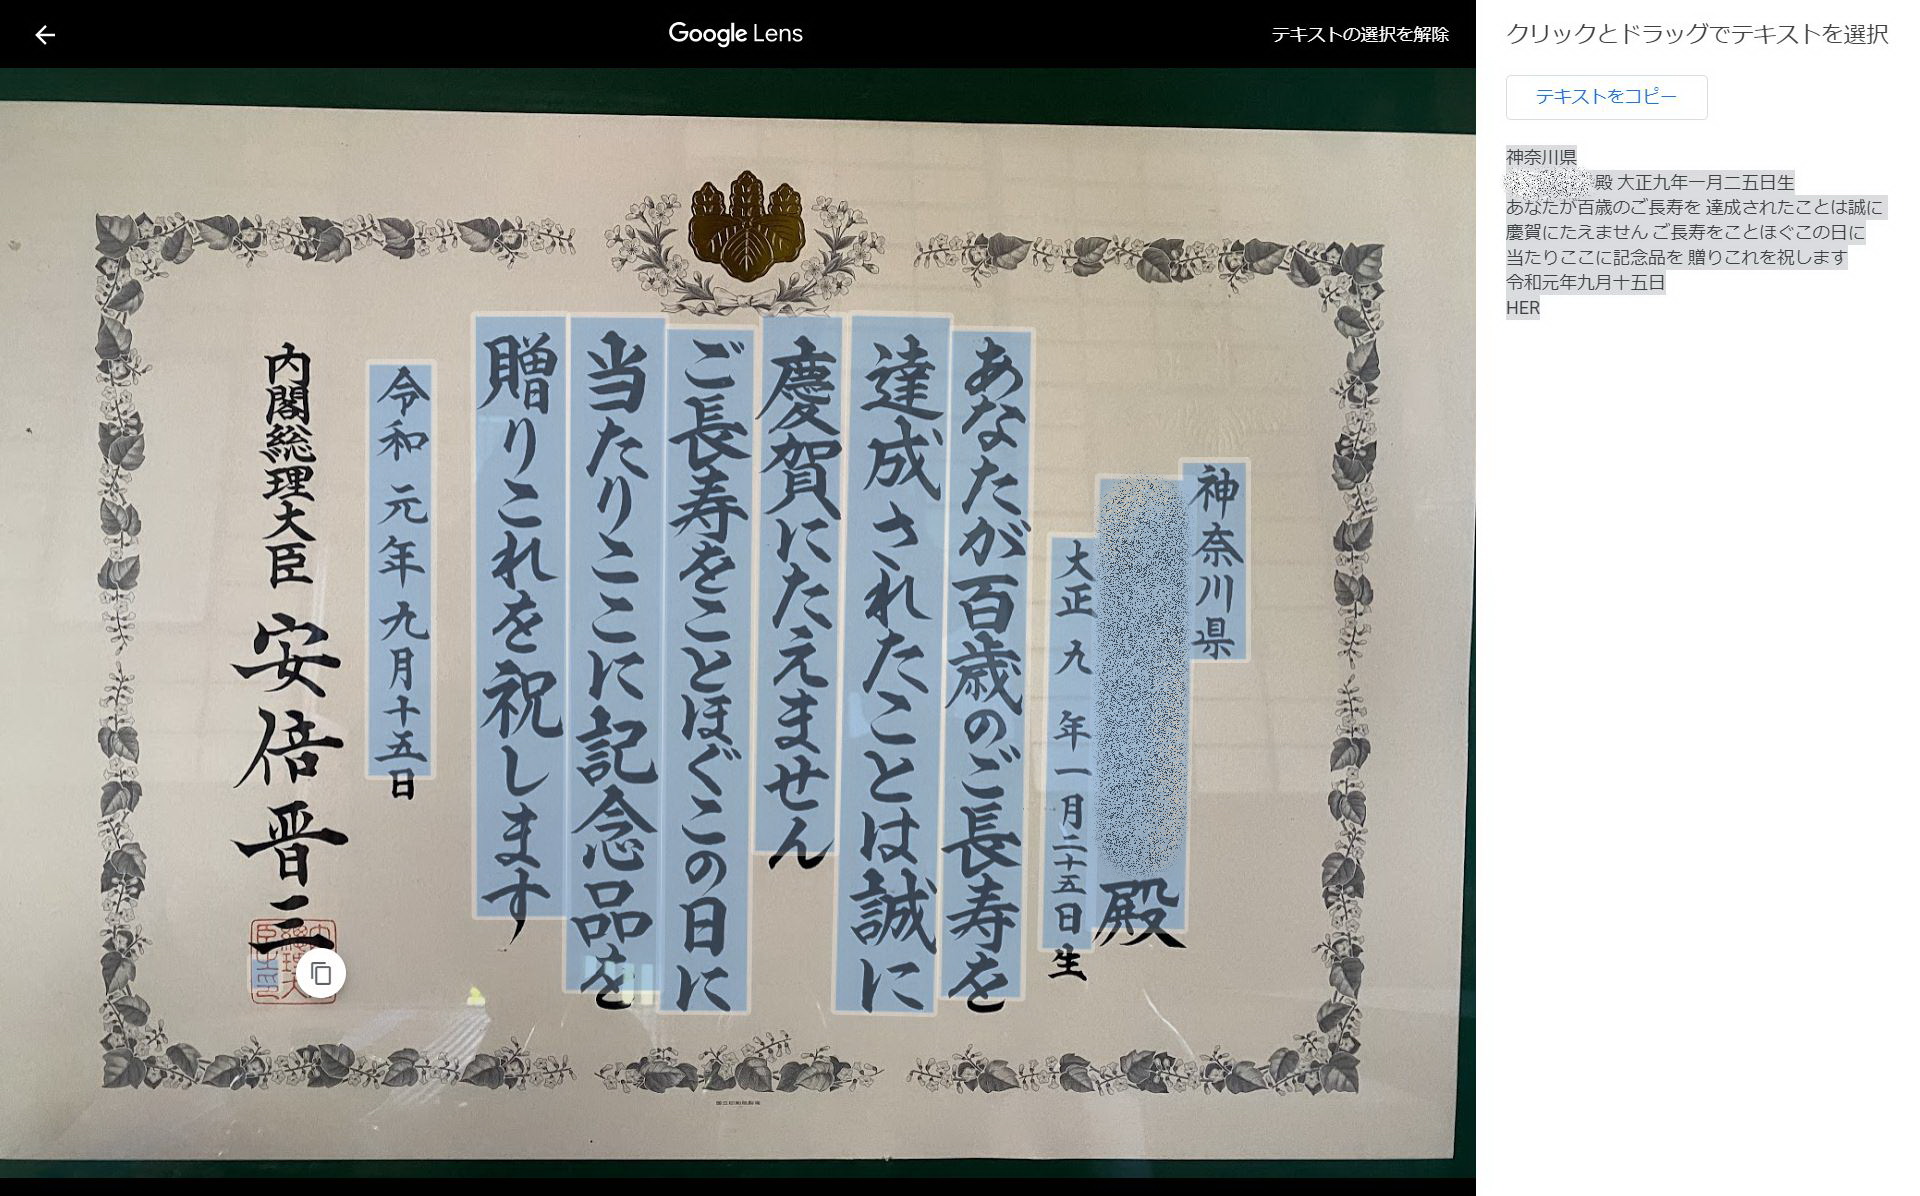 Google Lens
テキストの選択を解除
神奈川県
殿
大正九年一月二十五日生
あなたが百歳のご長寿を
達成されたことは誠に
慶賀にたえません
ご長寿をことほぐこの日に
当たりここに記念品を
贈りこれを祝します
令和元年九月十五日
内閣総理大臣 安倍晋三
クリックとドラッグでテキストを選択
テキストをコピー
神奈川県
殿 大正九年一月二五日生
あなたが百歳のご長寿を 達成されたことは誠に
慶賀にたえません ご長寿をことほぐこの日に
当たりここに記念品を 贈りこれを祝します
令和元年九月十五日
HER